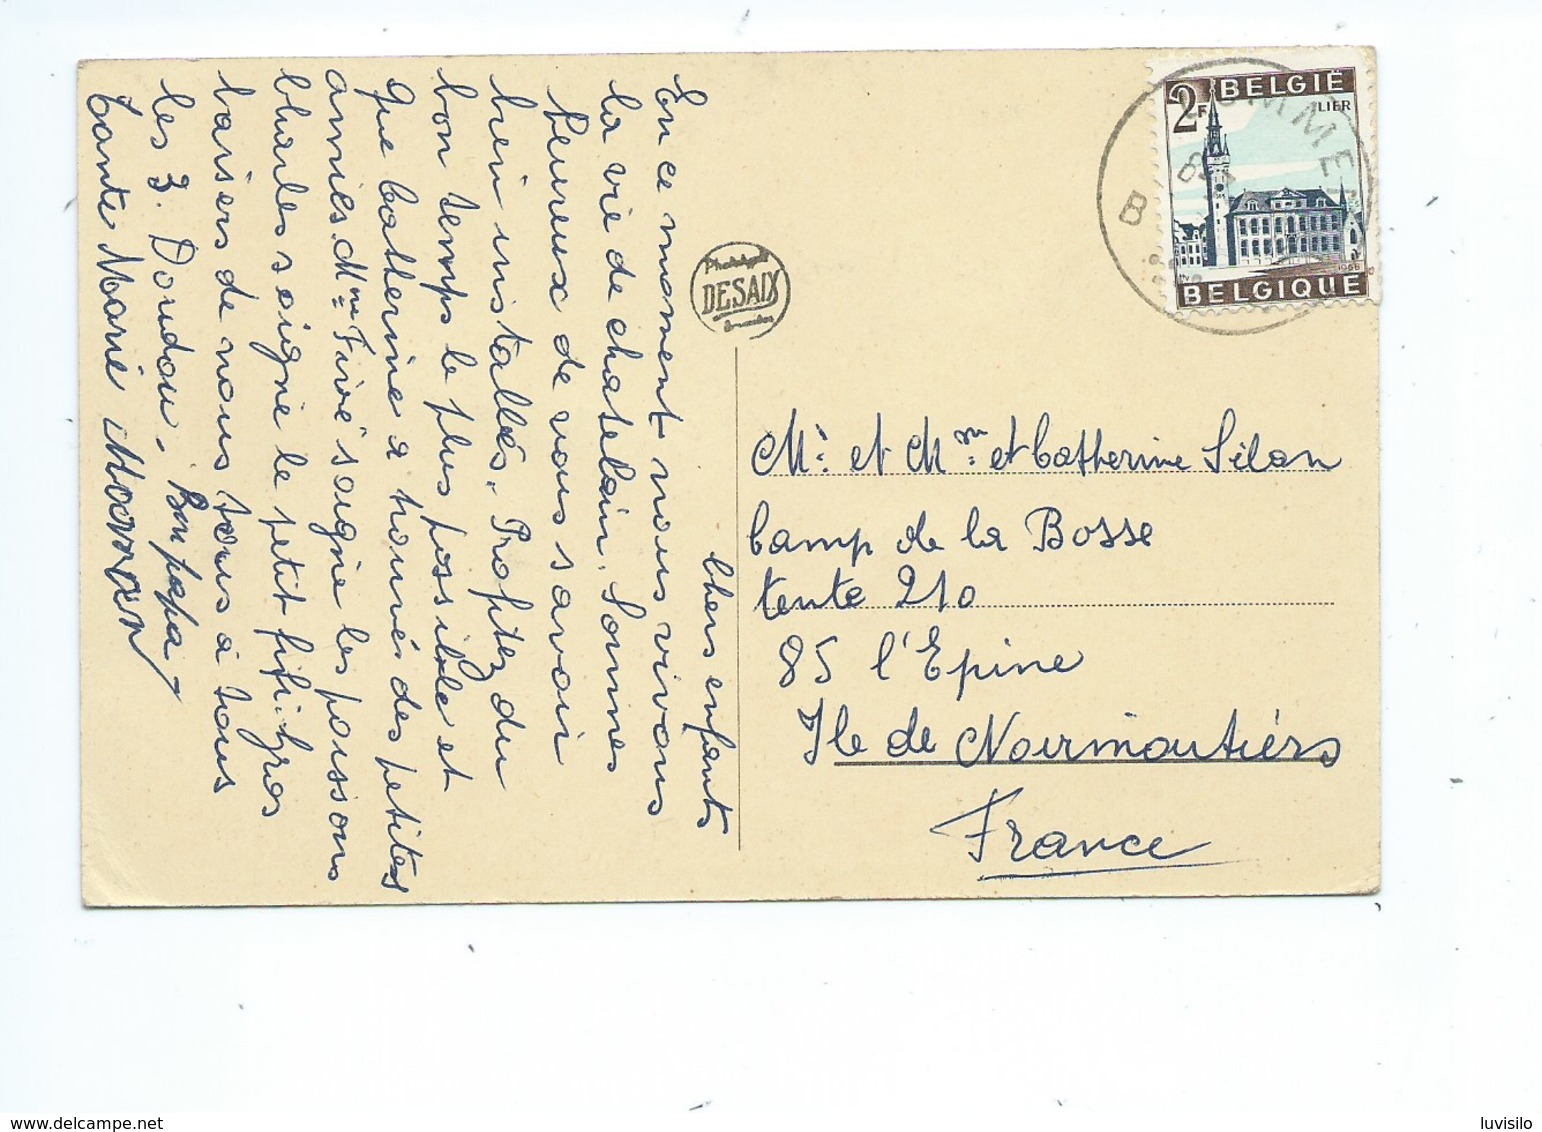 Chers enfants
En ce moment nous vivons
la vie de chatelain. Sommes
heureux de vous savoir
bien installés. Profitez du
bon temps le plus possible et
que Catherine a trouvé des petites
amies. Mme Fivé soigne les poissons
Charles soigne le petit fifi. Gros
baisers de nous tous à vous
les 3. Doudou. Bon papa
tante Marie
DESAIX
BELGIË
2F
LIER
1966
BELGIQUE
B
Mr et Mme et Catherine Silon
Camp de la Bosse
tente 210
85 l'Epine
Ile de Noirmoutiérs
France
delcampe.net
luvisilo